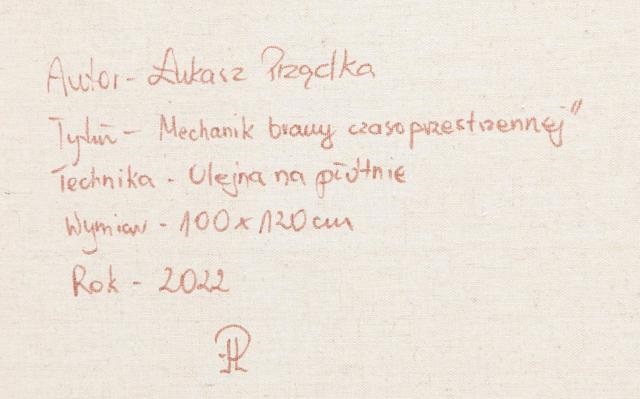 Autor - Łukasz Prządka
Tytuł - Mechanik bramy czasoprzestrzennej"
Technika - Olejna na płótnie
Wymiar - 100 x 120 cm
Rok - 2022